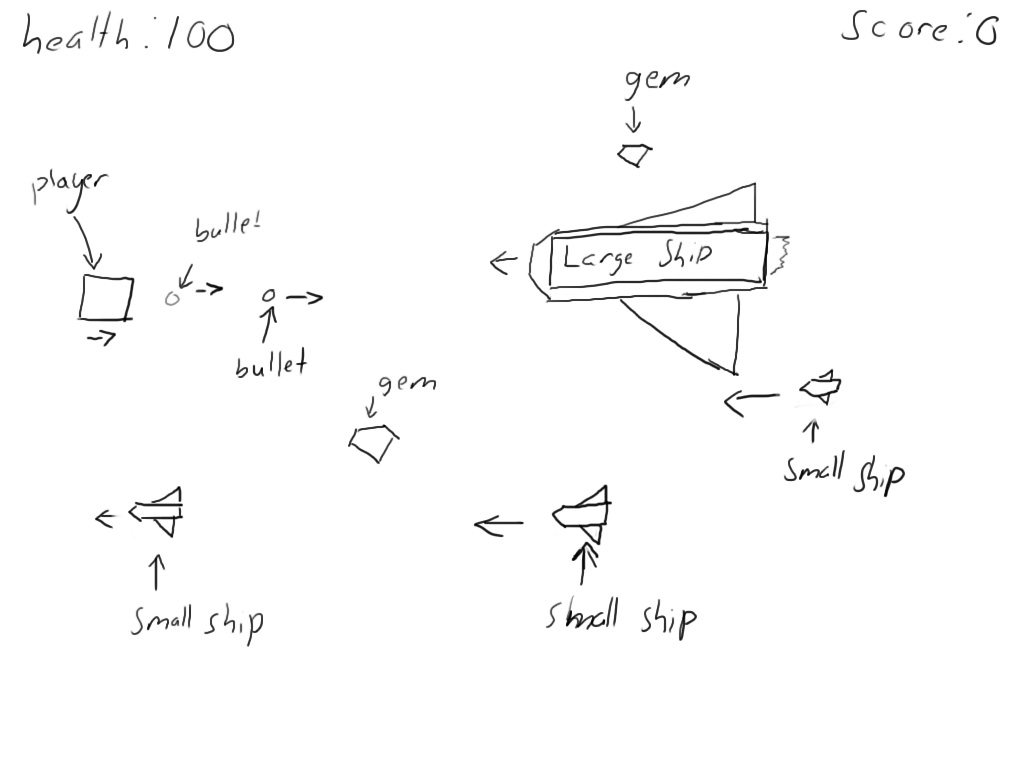 health: 100
Score: 0
gem
player
bullet
Large Ship
bullet
gem
small ship
small ship
small ship